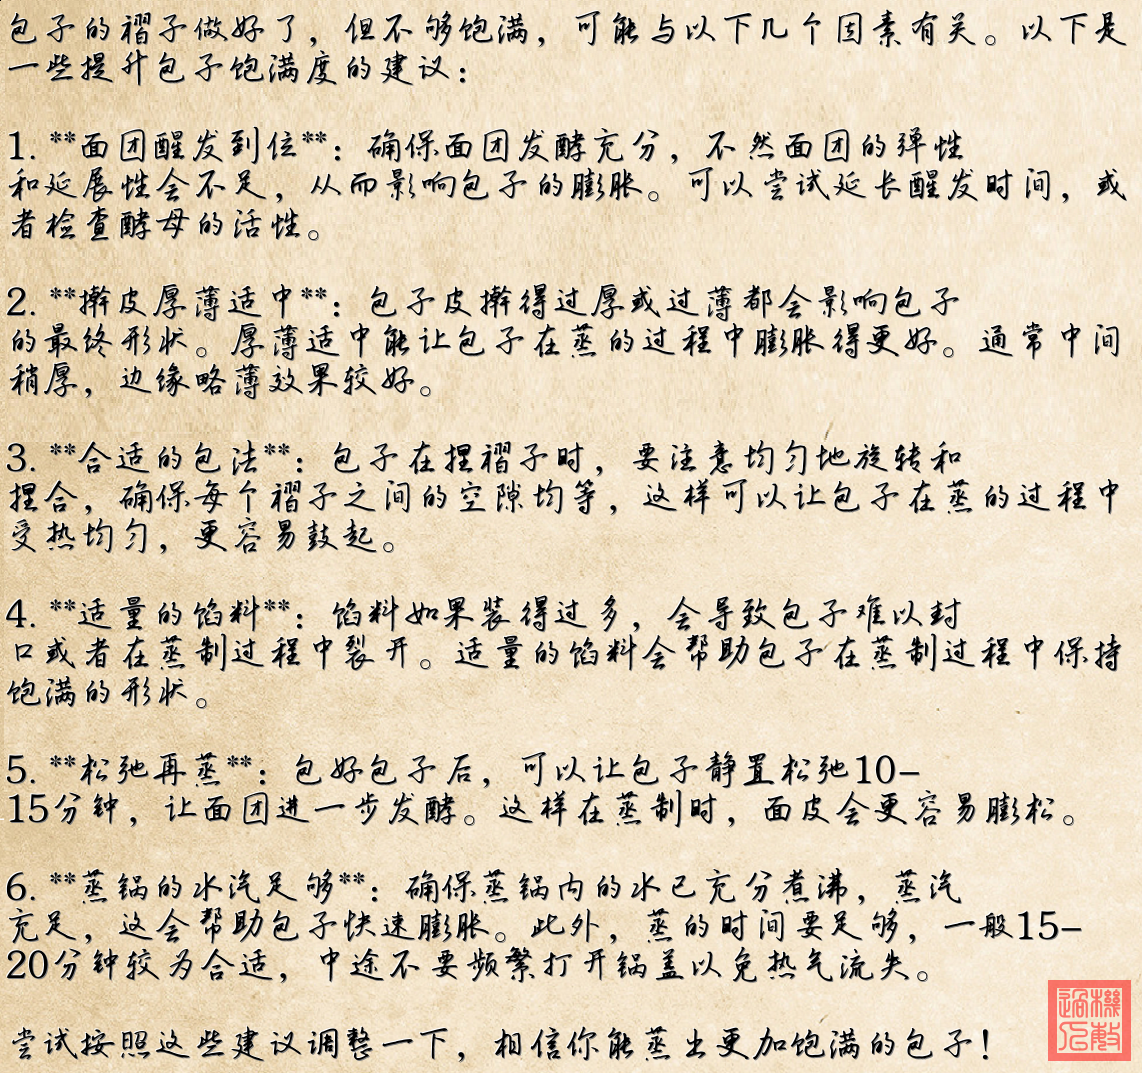 包子的褶子做好了，但不够饱满，可能与以下几个因素有关。以下是
一些提升包子饱满度的建议：
1. **面团醒发到位**：确保面团发酵充分，不然面团的弹性
和延展性会不足，从而影响包子的膨胀。可以尝试延长醒发时间，或
者检查酵母的活性。
2. **擀皮厚薄适中**：包子皮擀得过厚或过薄都会影响包子
的最终形状。厚薄适中能让包子在蒸的过程中膨胀得更好。通常中间
稍厚，边缘略薄效果较好。
3. **合适的包法**：包子在捏褶子时，要注意均匀地旋转和
捏合，确保每个褶子之间的空隙均等，这样可以让包子在蒸的过程中
受热均匀，更容易鼓起。
4. **适量的馅料**：馅料如果装得过多，会导致包子难以封
口或者在蒸制过程中裂开。适量的馅料会帮助包子在蒸制过程中保持
饱满的形状。
5. **松弛再蒸**：包好包子后，可以让包子静置松弛10-
15分钟，让面团进一步发酵。这样在蒸制时，面皮会更容易膨松。
6. **蒸锅的水汽足够**：确保蒸锅内的水已充分煮沸，蒸汽
充足，这会帮助包子快速膨胀。此外，蒸的时间要足够，一般15-
20分钟较为合适，中途不要频繁打开锅盖以免热气流失。
尝试按照这些建议调整一下，相信你能蒸出更加饱满的包子！